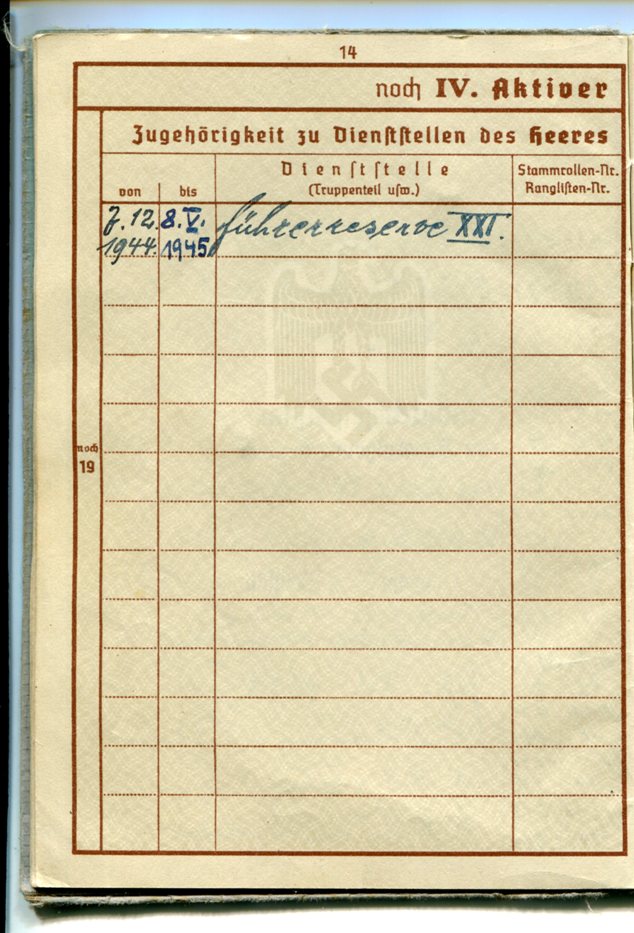 14
noch IV. Aktiver
Zugehörigkeit zu Dienststellen des Heeres
von
bis
Dienststelle
(Truppenteil usw.)
Stammrollen-Nr.
Ranglisten-Nr.
7. 12. 8. V. Führerreserve XXI.
1944. 1945
noch
19